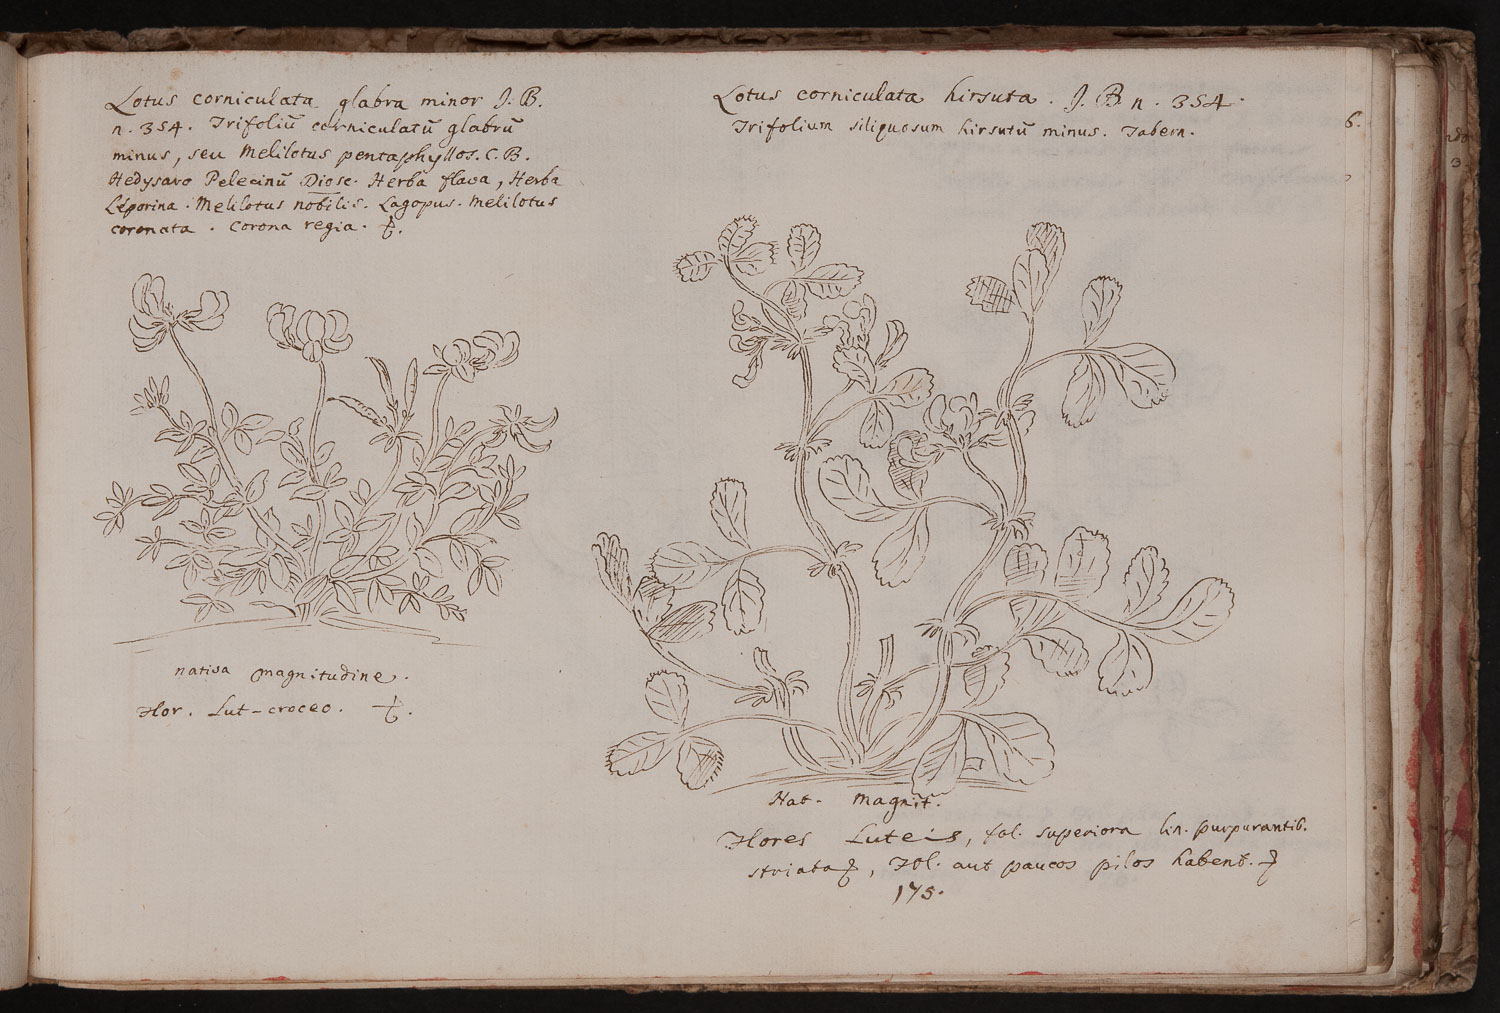 Lotus corniculata glabra minor J. B.
n. 354. Trifoliū corniculatū glabrū
minus, seu Melilotus pentaphyllos. C. B.
Hedysaro Pelecinū Diosc. Herba flava, Herba
Léporina. Melilotus nobilis. Lagopus. Melilotus
coronata. Corona regia. ♃.
nativa magnitudine.
Flor. Lut-croceo. ♃.
Lotus corniculata hirsuta. J. B n. 354.
Trifolium siliquosum hirsutū minus. Tabern.
6.
Nat. magnit.
Flores Luteis, fol. superiora lin. purpurantib.
striata, Fol. aut paucos pilos habent.
175.